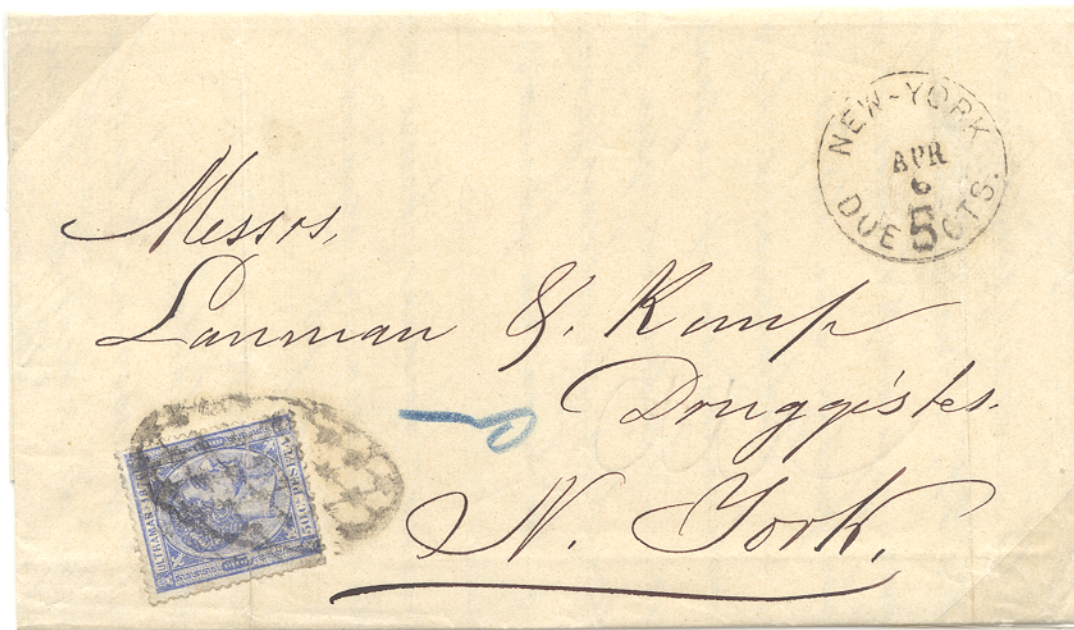 NEW-YORK
APR
6
DUE 5 CTS.
Messrs,
Lanman & Kemp
Druggistes.
N. York.
ULTRAMAR
50 C. PESETA